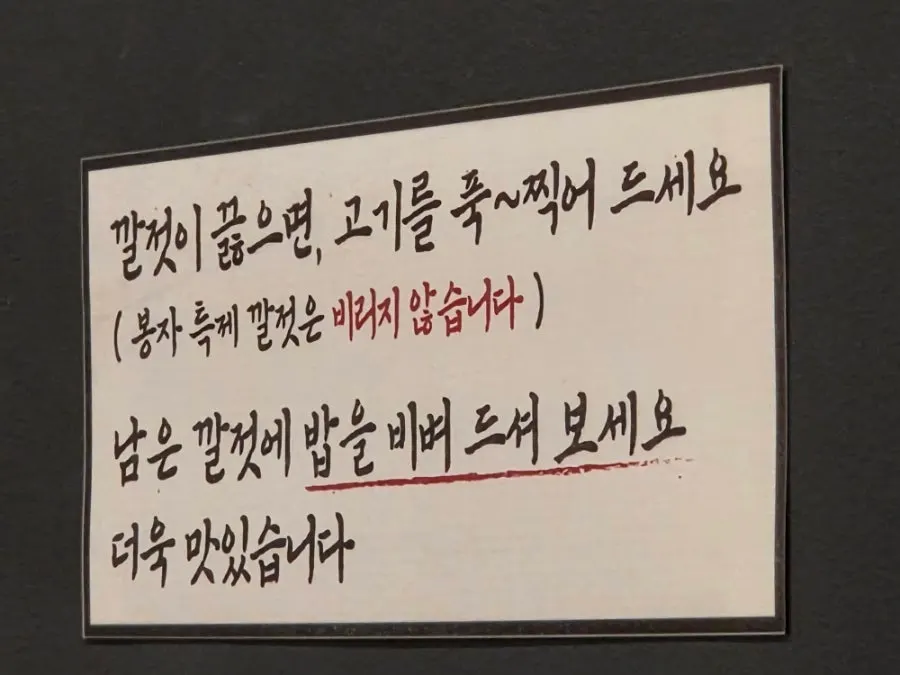 깔젓이 끓으면, 고기를 푹~찍어 드세요
( 봉자 특제 깔젓은 비리지 않습니다 )
남은 깔젓에 밥을 비벼 드셔 보세요
더욱 맛있습니다